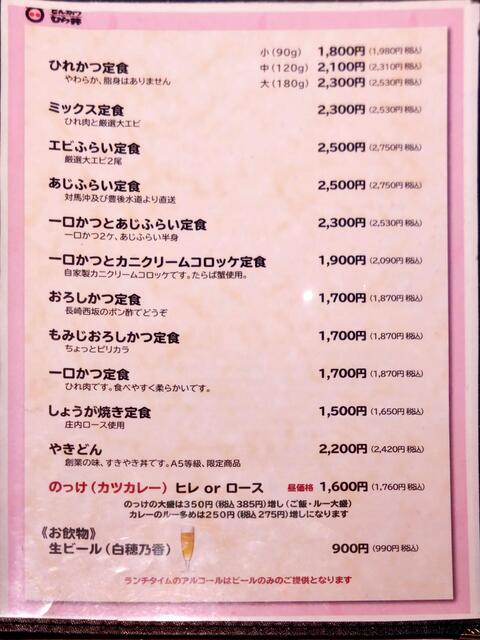 とんかつ
ひら井
小(90g) 1,800円(1,980円 税込)
ひれかつ定食 中(120g) 2,100円(2,310円 税込)
やわらか、脂身はありません 大(180g) 2,300円(2,530円 税込)
ミックス定食 2,300円(2,530円 税込)
ひれ肉と厳選大エビ
エビふらい定食 2,500円(2,750円 税込)
厳選大エビ2尾
あじふらい定食 2,500円(2,750円 税込)
対馬沖及び豊後水道より直送
一口かつとあじふらい定食 2,300円(2,530円 税込)
一口かつ2ケ、あじふらい半身
一口かつとカニクリームコロッケ定食 1,900円(2,090円 税込)
自家製カニクリームコロッケです。たらば蟹使用。
おろしかつ定食 1,700円(1,870円 税込)
長崎西坂のポン酢でどうぞ
もみじおろしかつ定食 1,700円(1,870円 税込)
ちょっとピリカラ
一口かつ定食 1,700円(1,870円 税込)
ひれ肉です。食べやすく柔らかいです。
しょうが焼き定食 1,500円(1,650円 税込)
庄内ロース使用
やきどん 2,200円(2,420円 税込)
創業の味、すきやき丼です。A5等級、限定商品
のっけ(カツカレー) ヒレ or ロース 昼価格 1,600円(1,760円 税込)
のっけの大盛は350円(税込 385円)増し(ご飯・ルー大盛)
カレーのルー多めは250円(税込 275円)増しになります
《お飲物》
生ビール(白穂乃香) 900円(990円 税込)
ランチタイムのアルコールはビールのみのご提供となります